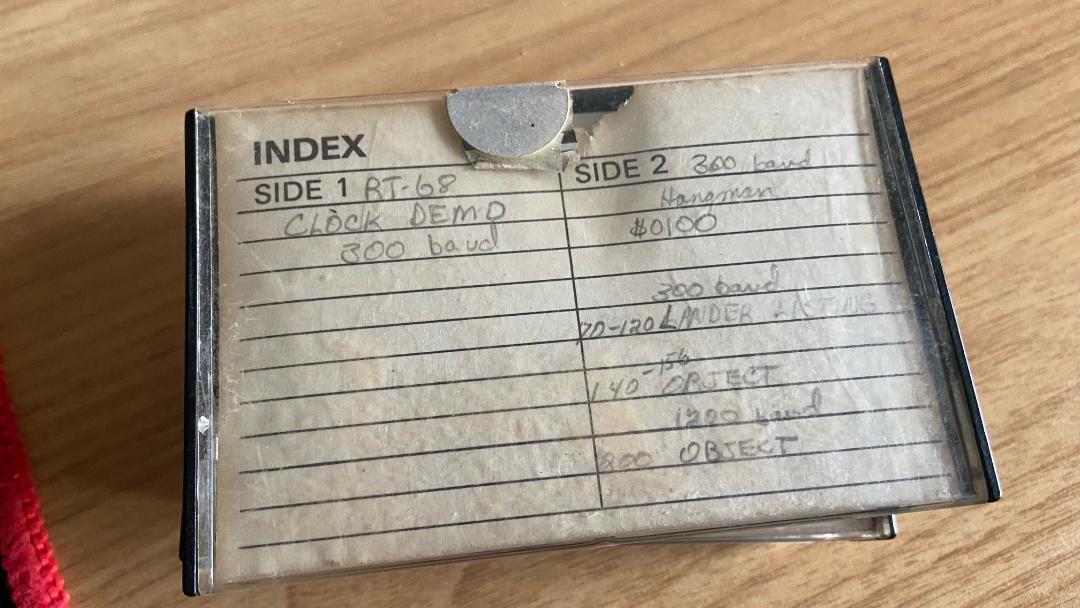 INDEX
SIDE 1 RT-68
CLOCK DEMO
300 baud
SIDE 2 300 baud
Hangman
$0100
300 baud
70-120 LANDER LISTING
140-156 OBJECT
1200 baud
200 OBJECT